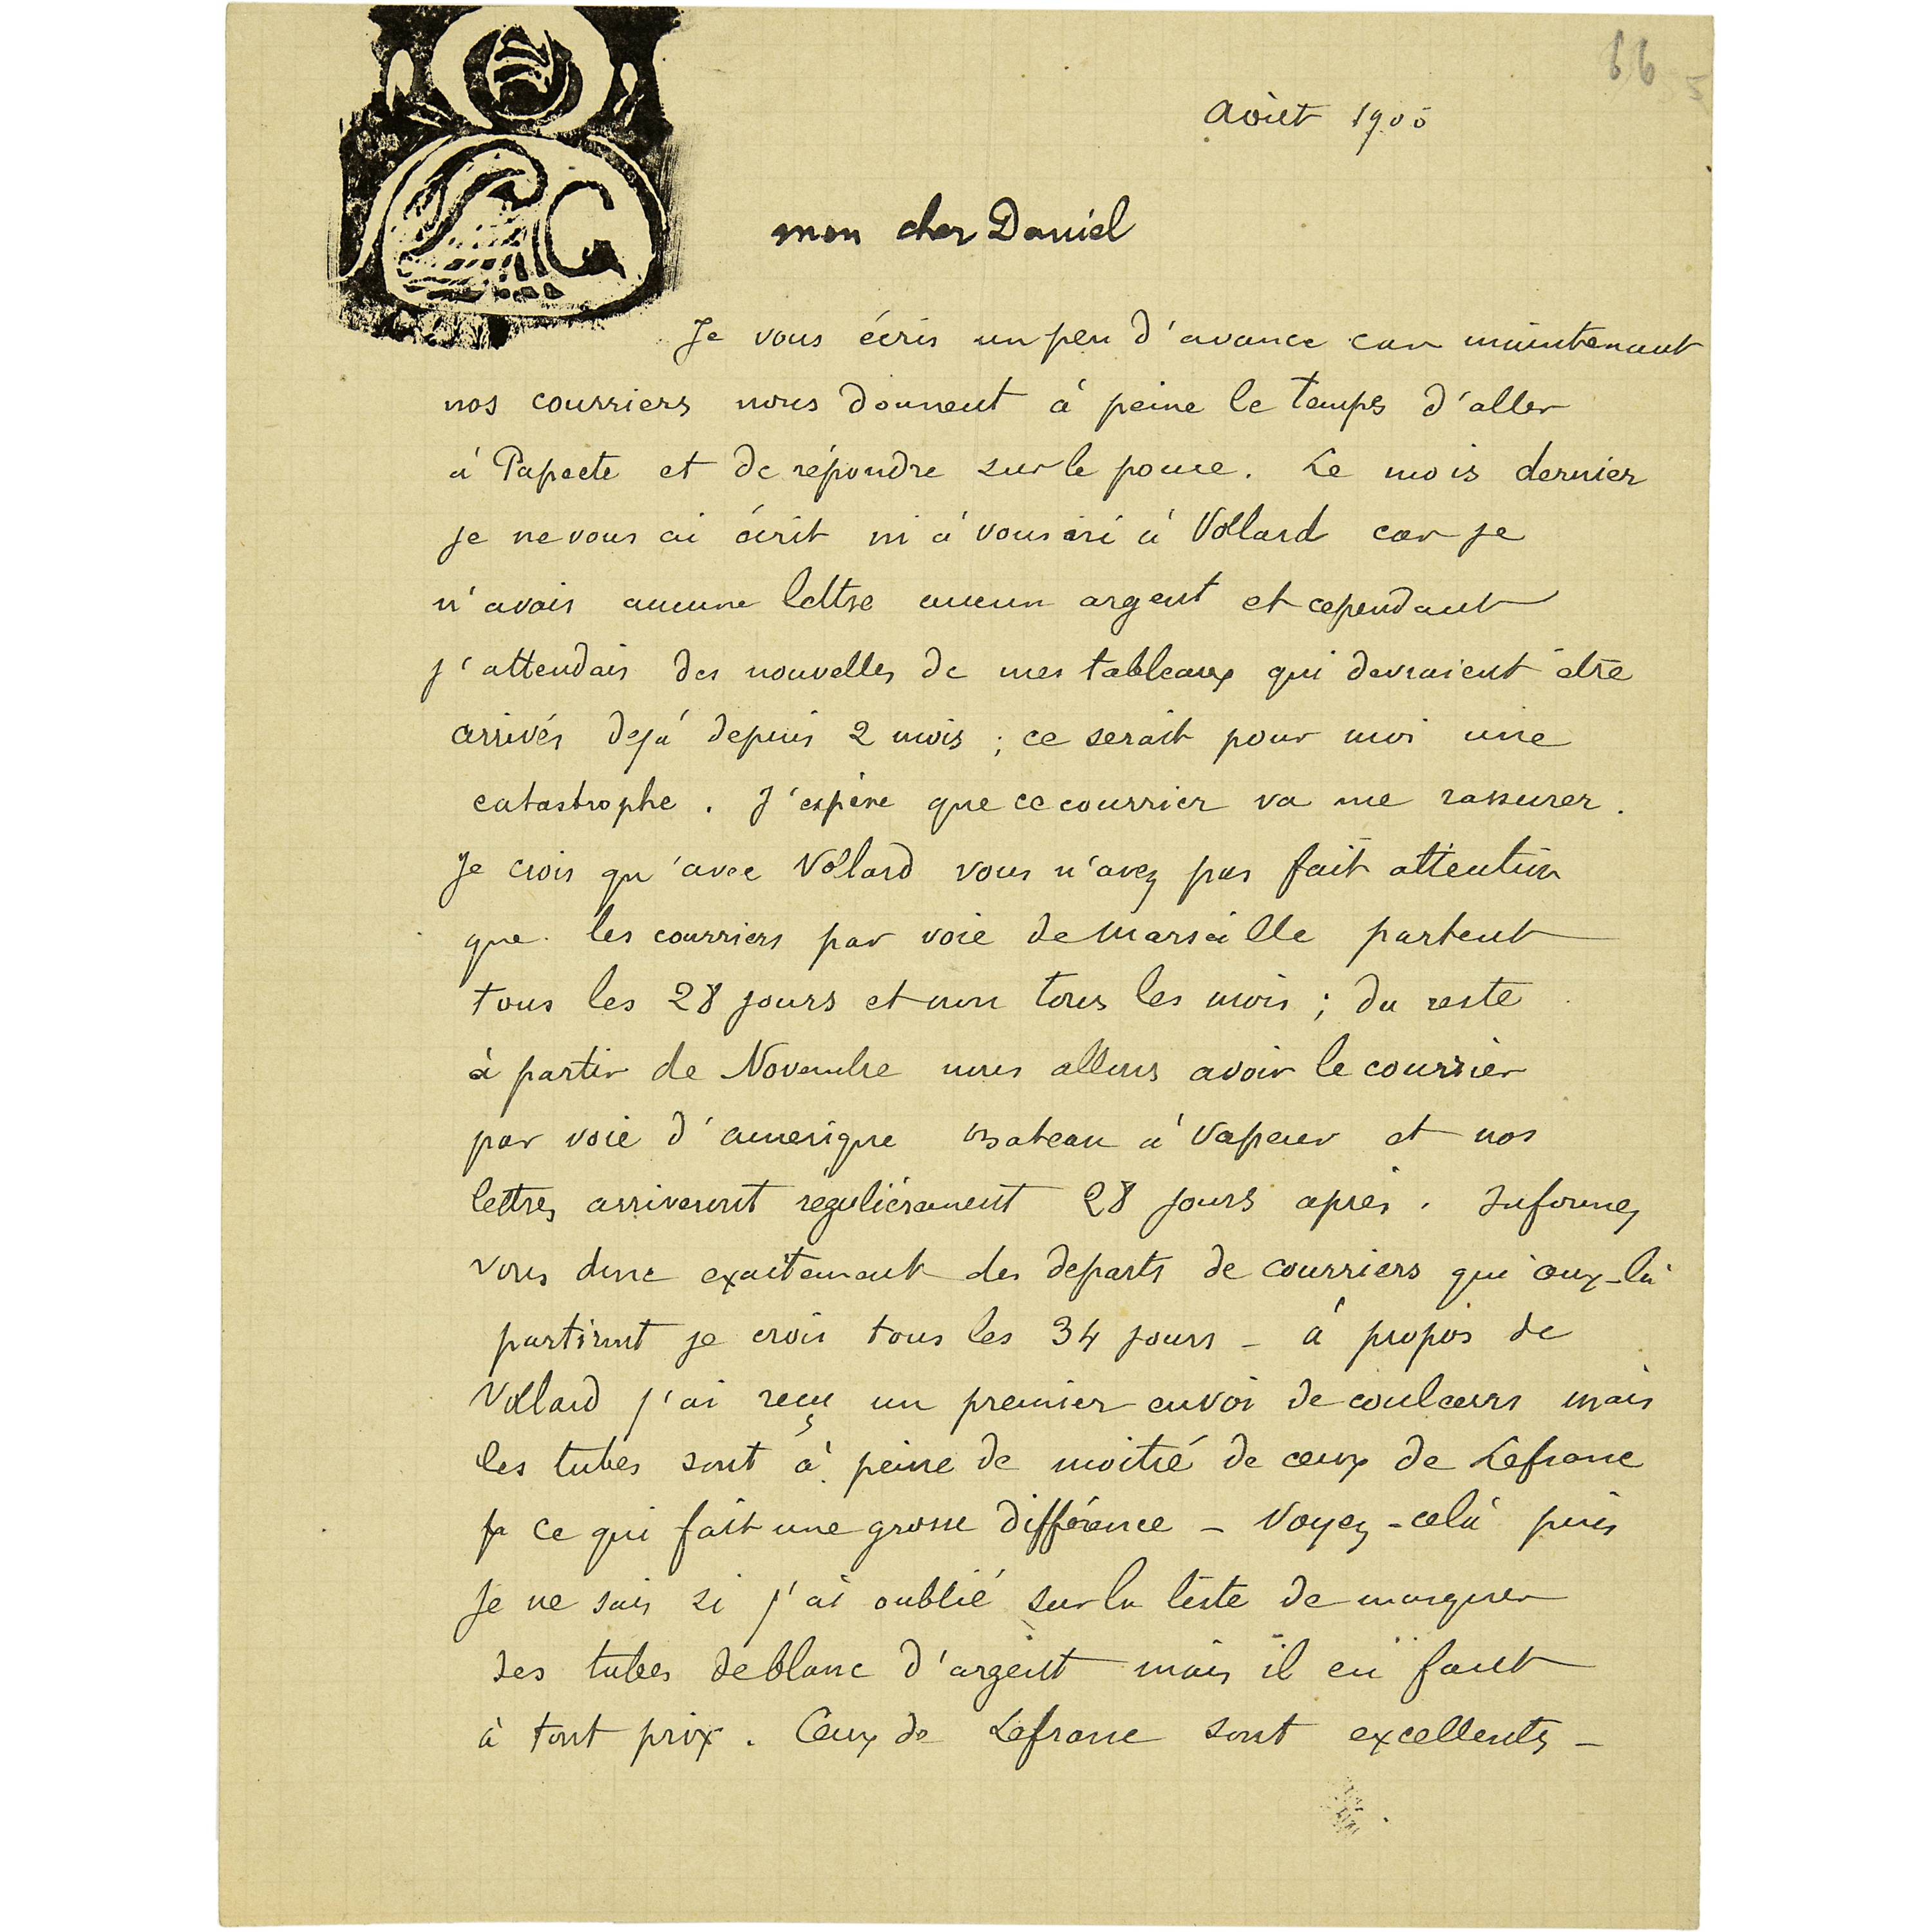 66
Août 1900
mon cher Daniel
Je vous écris un peu d'avance car maintenant
nos courriers nous donnent à peine le temps d'aller
à Papeete et de répondre sur le pouce. Le mois dernier
je ne vous ai écrit ni à vous ni à Vollard car je
n'avais aucune lettre aucun argent et cependant
j'attendais des nouvelles de mes tableaux qui devraient être
arrivés dejà depuis 2 mois ; ce serait pour moi une
catastrophe . J'espère que ce courrier va me rassurer .
Je crois qu'avec Vollard vous n'avez pas fait attention
que les courriers par voie de Marseille partent
tous les 28 jours et non tous les mois ; du reste
à partir de Novembre nous allons avoir le courrier
par voie d'amerique bateau à vapeur et nos
lettres arriveront régulièrement 28 jours après . Informez
vous donc exactement des departs de courriers qui ceux-là
partiront je crois tous les 34 jours - à propos de
Vollard j'ai reçu un premier envoi de couleurs mais
les tubes sont à peine de moitié de ceux de Lefranc
ce qui fait une grosse différence - Voyez-celà puis
Je ne sais si j'ai oublié sur la liste de marquer
des tubes de blanc d'argent mais il en faut
à tout prix . Ceux de Lefranc sont excellents -